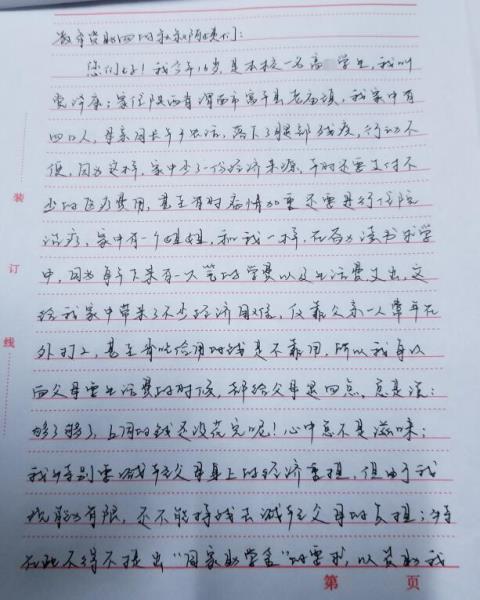 教育资助四的叔叔阿姨们：
您们好！我今年16岁，是本校一名高 学生，我叫
家住陕西省渭南市富平县老庙镇，我家中有
四口人，母亲因长年干农活，落下了腿部残疾，行动不
便，因为这样，家中少了一份经济来源，平时还要支付不
少的医疗费用，甚至有时病情加重还要进行住院
治疗，家中有一个姐姐，和我一样，在百为读书求学
中，因为每年下来有一大笔的学费以及生活费支出，这
给我家中带来了不少经济困难，仅靠父亲一人常年在
外打工，甚至省吃俭用的钱是不靠用，所以我每次
面父母要生活费的时候，都给父母 总是说：
够了够了，上周的钱还没花完呢！心中总不是滋味；
我特别要减轻父母身上的经济重担，但由于我
能力有限，还不能挣钱去减轻父母的负担；特
在此不得不提出“国家助学金”的要求，以资助我
装
订
线
第 页